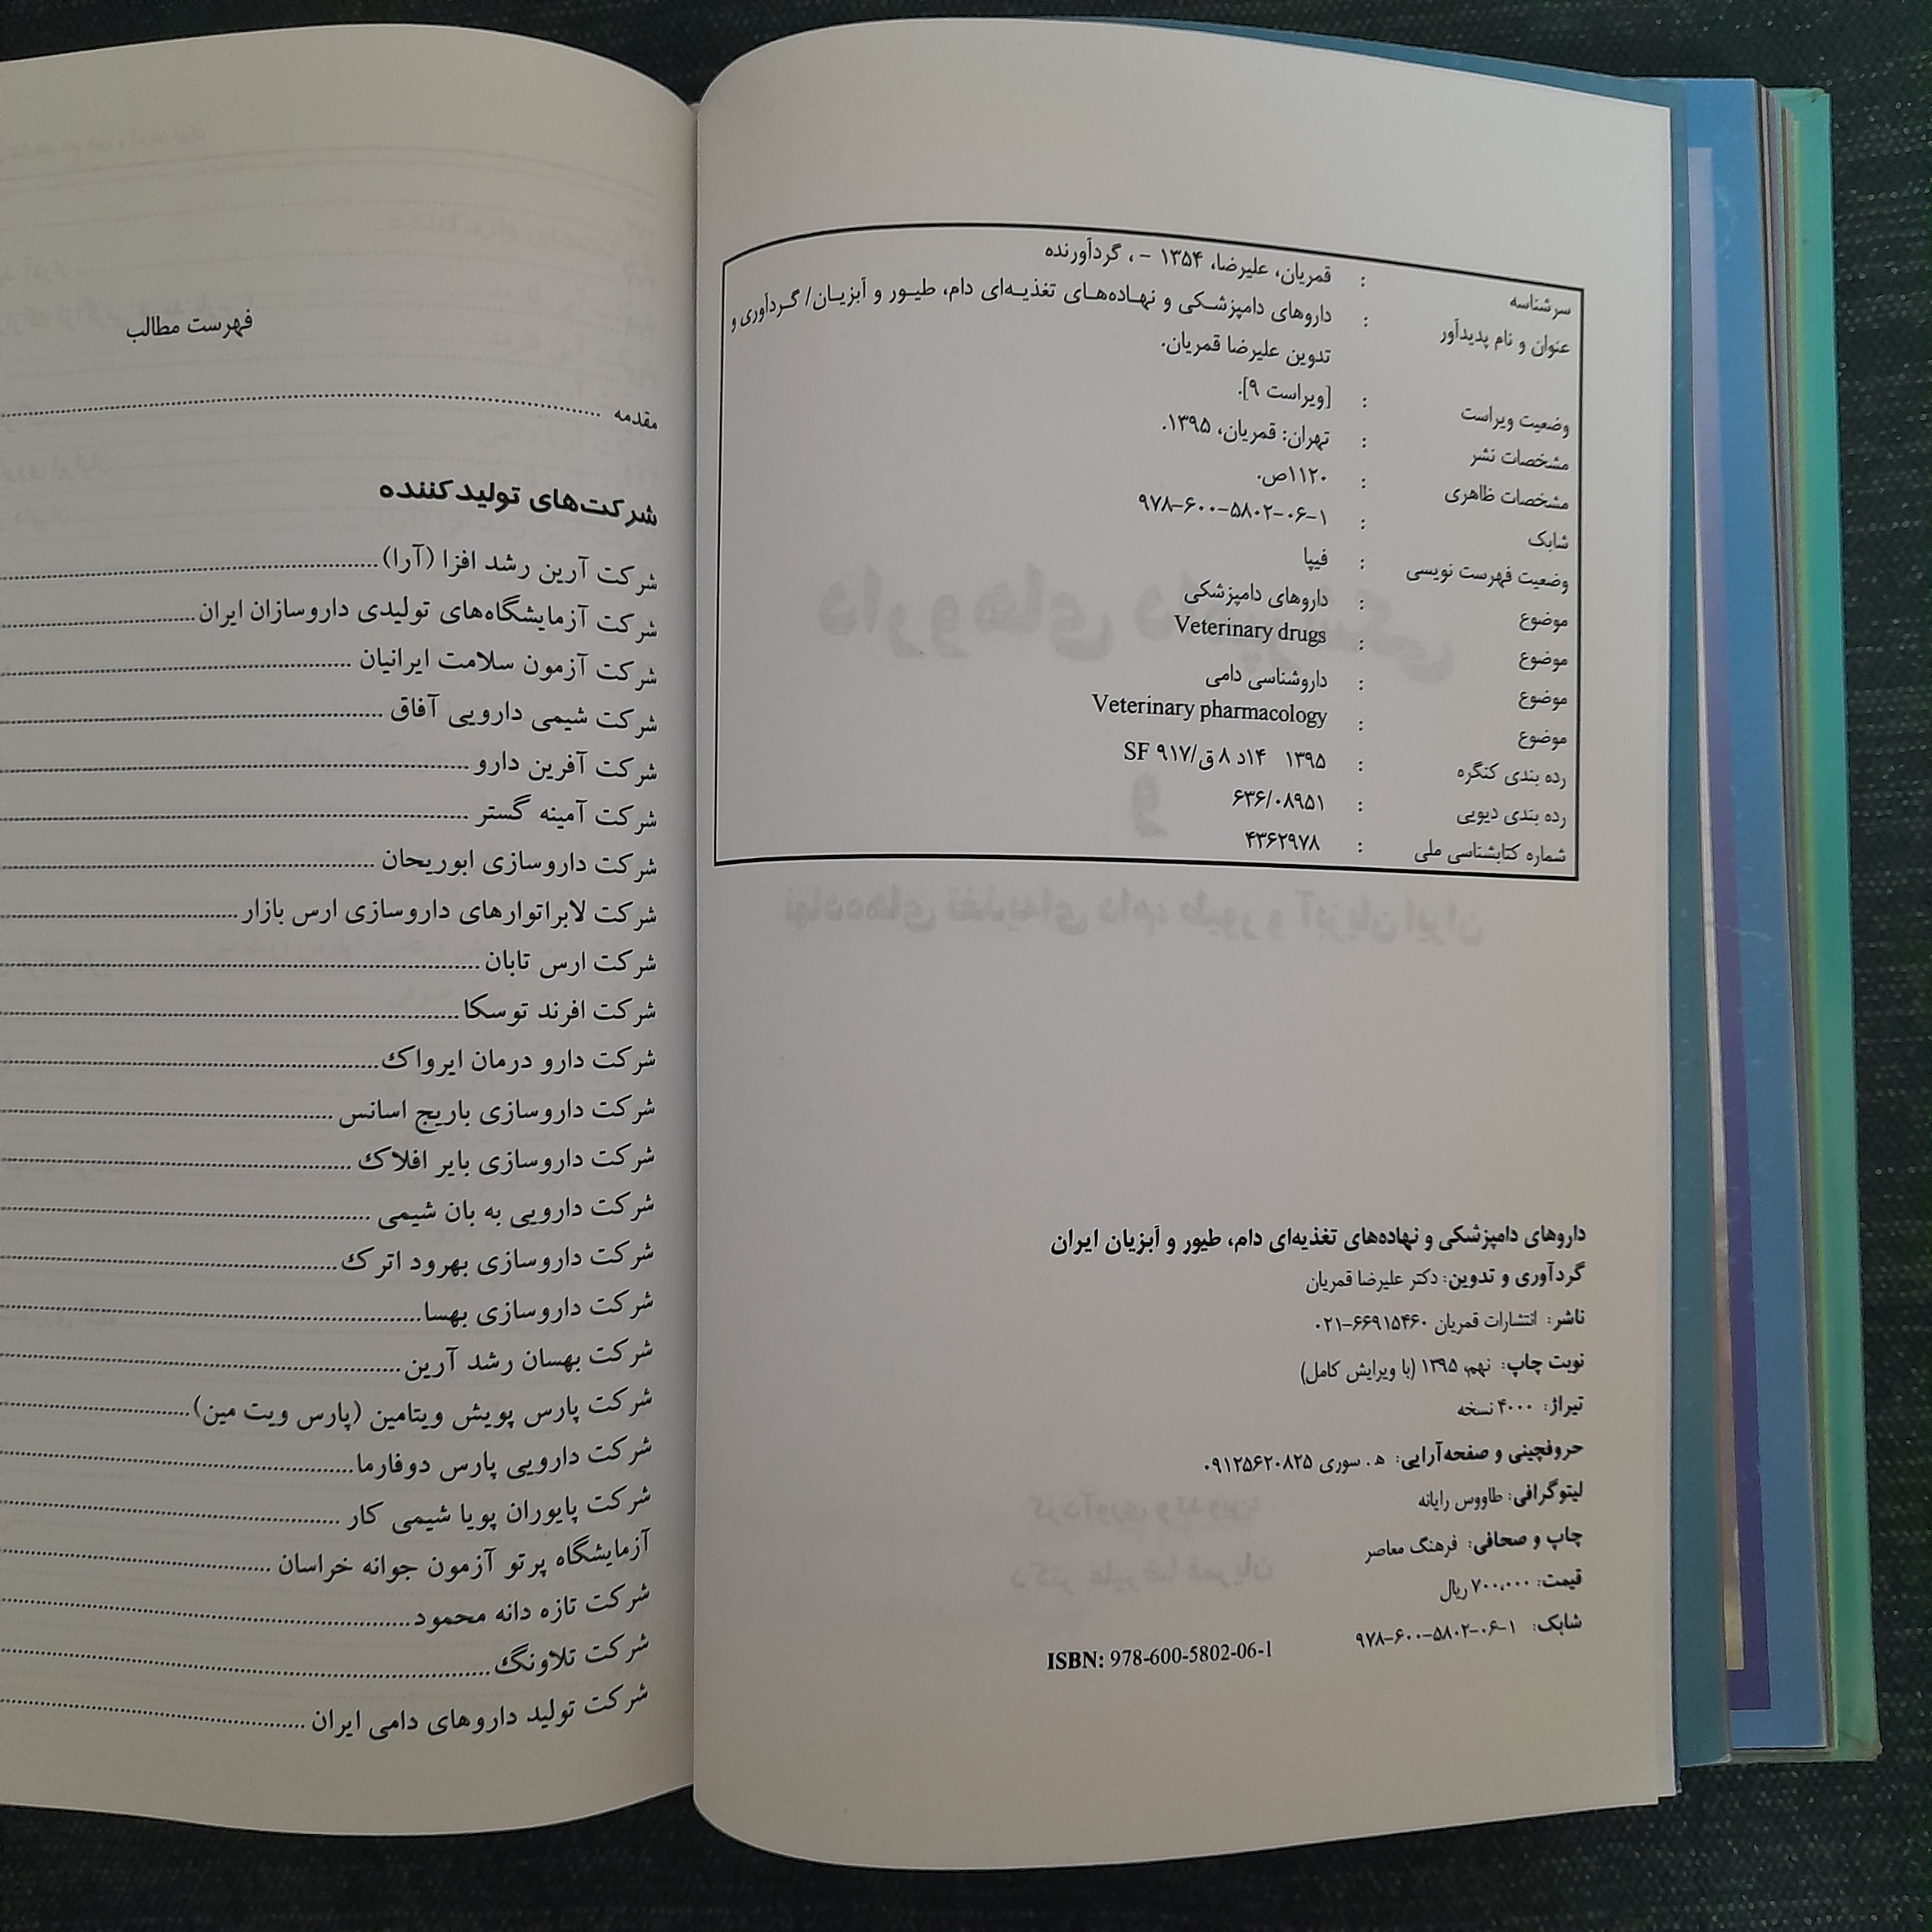 سرشناسه : قمریان، علیرضا، ۱۳۵۴ - ، گردآورنده
عنوان و نام پدیدآور : داروهای دامپزشکی و نهاده‌های تغذیه‌ای دام، طیور و آبزیان/ گردآوری و
تدوین علیرضا قمریان.
وضعیت ویراست : [ویراست ۹].
مشخصات نشر : تهران: قمریان، ۱۳۹۵.
مشخصات ظاهری : ۱۱۲۰ص.
شابک : ۹۷۸-۶۰۰-۵۸۰۲-۰۶-۱
وضعیت فهرست نویسی : فیپا
موضوع : داروهای دامپزشکی
موضوع : Veterinary drugs
موضوع : داروشناسی دامی
موضوع : Veterinary pharmacology
رده بندی کنگره : ۱۳۹۵ ۱۴د ۸ق/۹۱۷ SF
رده بندی دیویی : ۶۳۶/۰۸۹۵۱
شماره کتابشناسی ملی : ۴۳۶۲۹۷۸
داروهای دامپزشکی و نهاده‌های تغذیه‌ای دام، طیور و آبزیان ایران
گردآوری و تدوین: دکتر علیرضا قمریان
ناشر: انتشارات قمریان ۶۶۹۱۵۴۶۰-۰۲۱
نوبت چاپ: نهم، ۱۳۹۵ (با ویرایش کامل)
تیراژ: ۴۰۰۰ نسخه
حروفچینی و صفحه‌آرایی: ه. سوری ۰۹۱۲۵۶۲۰۸۲۵
لیتوگرافی: طاووس رایانه
چاپ و صحافی: فرهنگ معاصر
قیمت: ۷۰۰،۰۰۰ ریال
شابک: ۹۷۸-۶۰۰-۵۸۰۲-۰۶-۱ ISBN: 978-600-5802-06-1
فهرست مطالب
مقدمه
شرکت‌های تولیدکننده
شرکت آرین رشد افزا (آرا)
شرکت آزمایشگاه‌های تولیدی داروسازان ایران
شرکت آزمون سلامت ایرانیان
شرکت شیمی دارویی آفاق
شرکت آفرین دارو
شرکت آمینه گستر
شرکت داروسازی ابوریحان
شرکت لابراتوارهای داروسازی ارس بازار
شرکت ارس تابان
شرکت افرند توسکا
شرکت دارو درمان ایرواک
شرکت داروسازی باریج اسانس
شرکت داروسازی بایر افلاک
شرکت دارویی به بان شیمی
شرکت داروسازی بهرود اترک
شرکت داروسازی بهسا
شرکت بهسان رشد آرین
شرکت پارس پویش ویتامین (پارس ویت مین)
شرکت دارویی پارس دوفارما
شرکت پایوران پویا شیمی کار
آزمایشگاه پرتو آزمون جوانه خراسان
شرکت تازه دانه محمود
شرکت تلاونگ
شرکت تولید داروهای دامی ایران